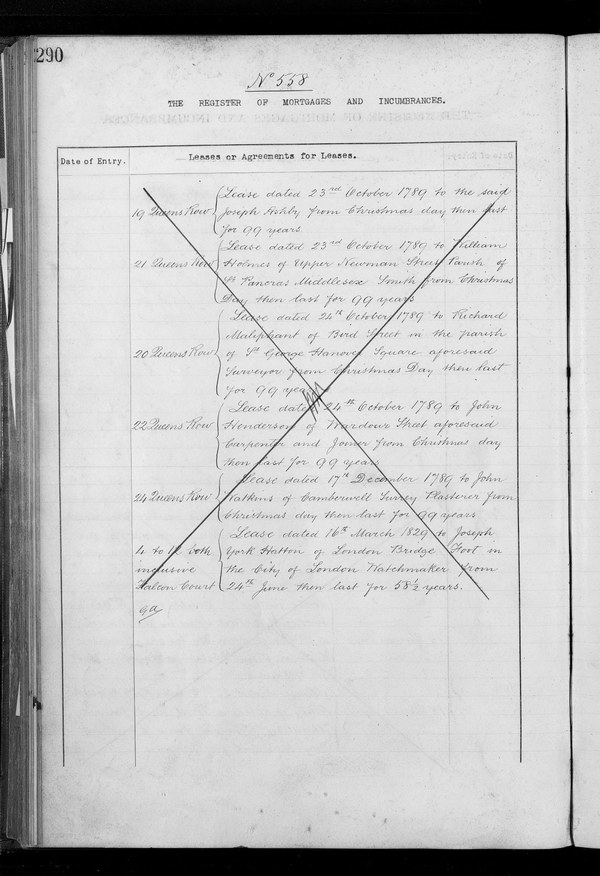 290
No 558
THE REGISTER OF MORTGAGES AND INCUMBRANCES.
Date of Entry.
Leases or Agreements for Leases.
Lease dated 23rd October 1789 to the said
19 Queens Row Joseph Ashby from Christmas day then last
for 99 years
Lease dated 23rd October 1789 to William
21 Queens Row Holmes of Upper Newman Street Parish of
St Pancras Middlesex Smith from Christmas
Day then last for 99 years
Lease dated 24th October 1789 to Richard
Maliphant of Bird Street in the parish
20 Queens Row of St George Hanover Square aforesaid
Surveyor from Christmas Day then last
for 99 years
Lease dated 24th October 1789 to John
22 Queens Row Henderson of Wardour Street aforesaid
Carpenter and Joiner from Christmas day
then last for 99 years
Lease dated 17th December 1789 to John
24 Queens Row Watkins of Camberwell Surrey Plasterer from
Christmas day then last for 99 years
Lease dated 16th March 1829 to Joseph
4 to 12 both York Hatton of London Bridge Foot in
inclusive the City of London Watchmaker from
Falcon Court 24th June then last for 58 1/2 years.